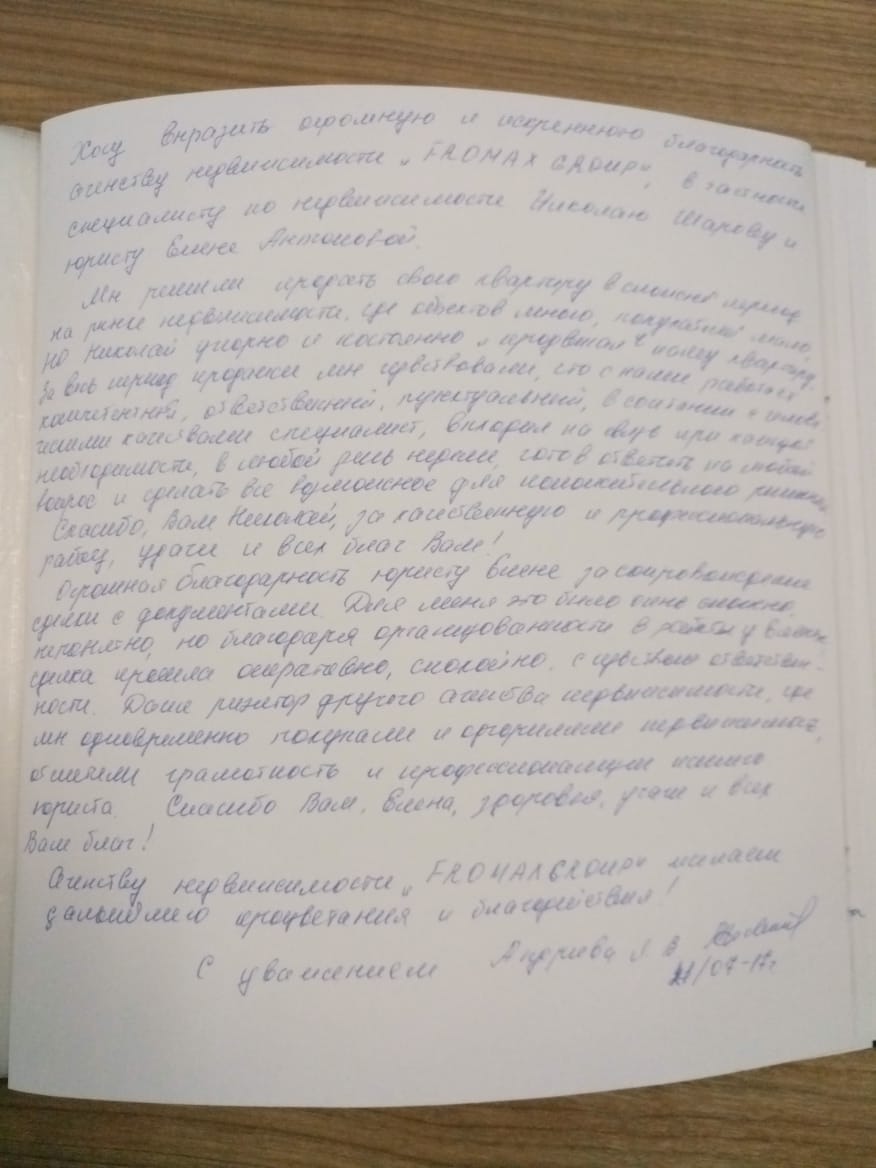 Хочу выразить огромную и искреннюю благодарность
агенству недвижимости „FROMAX GROUP“, в частности
специалисту по недвижимости Николаю Шарову и
юристу Елене Антоновой.
Мы решили продать свою квартиру в сложный период
на рынке недвижимости, где объектов много, покупателей мало,
но Николай упорно и постоянно „продвигал“ нашу квартиру.
За весь период продажи мы чувствовали, что с нами работает
компетентный, ответственный, пунктуальный, в сочетании с
качествами специалист, выходил на связь при каждой
необходимости, в любой день недели, готов ответить на любой
вопрос и сделать все возможное для положительного решения.
Спасибо, Вам Николай, за качественную и профессиональную
работу, удачи и всех благ Вам!
Огромная благодарность юристу Елене за сопровождение
сделки с документами. Для меня это было очень сложно,
непонятно, но благодаря организованности в работе у Елены,
сделка прошла оперативно, спокойно, с чувством ответствен-
ности. Даже риэлтор другого агенства недвижимости, где
мы одновременно покупали и оформляли недвижимость,
отметили грамотность и профессионализм нашего
юриста. Спасибо Вам, Елена, здоровья, удачи и всех
Вам благ!
Агенству недвижимости „FROMAXGROUP“ желаем
дальнейшего процветания и благоденствия!
С уважением Андреева Я. В.
/07-17г